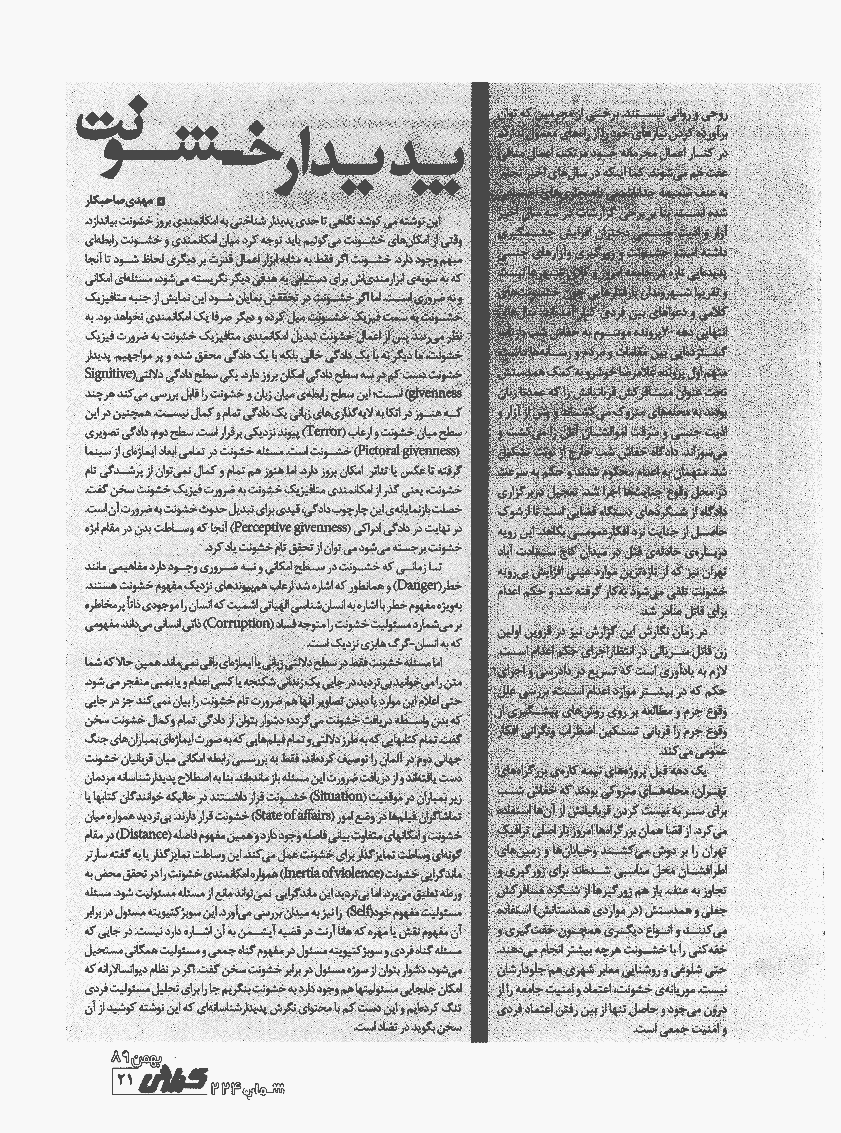 روحی و روانی نیستند. برخی از مجرمین که توان
برآورده کردن نیازهای خود را از راه‌های معمول ندارند
در کنار اعمال مجرمانه خود مرتکب اعمال منافی
عفت هم می‌شوند. کما اینکه در سال‌های اخیر تجاوز
به عنف
شده است. بنا بر برخی گزارشات در سه سال اخیر
آزار و اذیت جنسی دختران افزایش چشمگیری
داشته است. خشونت و زورگیری و آزارهای جنسی
پدیده‌ای تازه در جامعه امروز و کلان شهرها نیست
و تقریبا شهروندان با رفتارهایی چون خشونت‌های
کلامی و دعواهای بین فردی سال‌های
انتهایی دهه ۷۰ پرونده موسوم به خفاش شب بازتاب
گسترده‌ایی بین مقامات و مردم و رسانه‌ها داشت.
متهم اول پرونده غلامرضا خوشرو به کمک همدستش
تحت عنوان مسافرکش قربانیانش را که عمدتا زنان
بودند به محله‌های متروک می‌کشاند و پس از آزار و
اذیت جنسی و سرقت اموالشان آنان را می‌کشت و
می‌سوزاند. دادگاه خفاش شب خارج از نوبت تشکیل
شد. متهمان به اعدام محکوم شدند و حکم به سرعت
در محل وقوع جنایت‌ها اجرا شد. تعجیل در برگزاری
دادگاه از شگردهای دستگاه قضایی است تا از شوک
حاصل از جنایت نزد افکار عمومی بکاهد. این رویه
درباره‌ی حادثه‌ی قتل در میدان کاج سعادت آباد
تهران نیز که از تازه‌ترین موارد عینی افزایش بی‌رویه
خشونت تلقی می‌شود به‌کار گرفته شد و حکم اعدام
برای قاتل صادر شد.
در زمان نگارش این گزارش نیز در قزوین اولین
زن قاتل سریالی در انتظار اجرای حکم اعدام است.
لازم به یادآوری است که تسریع در دادرسی و اجرای
حکم که در بیشتر موارد اعدام است، بررسی علل
وقوع جرم و مطالعه بر روی روش‌های پیشگیری از
وقوع جرم را قربانی تسکین اضطراب ونگرانی افکار
عمومی می‌کند.
یک دهه قبل پروژه‌های نیمه کاره‌ی بزرگراه‌های
تهران، محله‌های متروکی بودند که خفاش شب
برای سر به نیست کردن قربانیانش از آن‌ها استفاده
می‌کرد. از قضا همان بزرگراه‌ها امروز بار اصلی ترافیک
تهران را بر دوش می‌کشند وخیابان‌ها و زمین‌های
اطرافشان محل مناسبی شده‌اند برای زورگیری و
تجاوز به عنف. باز هم زورگیرها از شگرد مسافرکش
جعلی و همدستش (در مواردی همدستانش) استفاده
می‌کنند و انواع دیگری همچون خفت‌گیری و
خفه‌کنی را با خشونت هرچه بیشتر انجام می‌دهند.
حتی شلوغی و روشنایی معابر شهری هم جلودارشان
نیست. موریانه‌ی خشونت، اعتماد و امنیت جامعه را از
درون می‌جود و حاصل تنها از بین رفتن اعتماد فردی
و امنیت جمعی است.
پدیدار خشونت
مهدی صاحبکار
این نوشته می کوشد نگاهی تا حدی پدیدار شناختی به امکانمندی بروز خشونت بیاندازد.
وقتی از امکان‌های خشونت می‌گوئیم باید توجه کرد میان امکانمندی و خشونت رابطه‌ای
مبهم وجود دارد. خشونت اگر فقط به مثابه ابزار اعمال قدرت بر دیگری لحاظ شود تا آنجا
که به سویه‌ی ابزارمندی‌اش برای دستیابی به هدفی دیگر نگریسته می‌شود، مسئله‌ای امکانی
و نه ضروری است. اما اگر خشونت در تحققش نمایان شود این نمایش از جنبه متافیزیک
خشونت به سمت فیزیک خشونت میل کرده و دیگر صرفا یک امکانمندی نخواهد بود. به
نظر می‌رسد پس از اعمال خشونت تبدیل امکانمندی متافیزیک خشونت به ضرورت فیزیک
خشونت، ما دیگر نه با یک دادگی خالی بلکه با یک دادگی محقق شده و پر مواجهیم. پدیدار
خشونت دست کم در سه سطح دادگی امکان بروز دارد. یکی سطح دادگی دلالتی(Signitive
givenness) است؛ این سطح رابطه‌ی میان زبان و خشونت را قابل بررسی می‌کند هرچند
که هنوز در اتکا به لایه‌گذاری‌های زبانی یک دادگی تمام و کمال نیست. همچنین در این
سطح میان خشونت و ارعاب (Terror) پیوند نزدیکی برقرار است. سطح دوم، دادگی تصویری
(Pictoral givenness) خشونت است. مسئله خشونت در تمامی ابعاد ایماژه‌ای از سینما
گرفته تا عکس یا تئاتر. امکان بروز دارد. اما هنوز هم تمام و کمال نمی‌توان از پرشدگی تام
خشونت، یعنی گذر از امکانمندی متافیزیک خشونت به ضرورت فیزیک خشونت سخن گفت.
خصلت بازنمایانه‌ی این چارچوب تصویری، قیدی برای تبدیل حدوث خشونت به ضرورت آن است.
در نهایت در دادگی ادراکی (Perceptive givenness) آنجا که وساطت بدن در مقام ابژه
خشونت برجسته می‌شود می توان از تحقق تام خشونت یاد کرد.
تا زمانی که خشونت در سطح امکانی و نه ضروری وجود دارد مفاهیمی مانند
خطر(Danger) و همانطور که اشاره شد ارعاب هم‌پیوندهای نزدیک مفهوم خشونت هستند.
به‌ویژه مفهوم خطر با اشاره به انسان‌شناسی الهیاتی اشمیت که انسان را موجودی ذاتاً پرمخاطره
بر می‌شمارد مسئولیت خشونت را متوجه فساد (Corruption) ذاتی انسانی می‌داند، مفهومی
که به انسان-گرگ هابزی نزدیک است.
اما مسئله خشونت فقط در سطح دلالتی زبانی یا ایماژه‌ای باقی نمی‌ماند. همین حالا که شما
متن را می‌خوانید بی‌تردید در جایی یک زندانی شکنجه یا کسی اعدام و یا بمبی منفجر می شود.
حتی اعلام این موارد یا دیدن تصاویر آنها هم ضرورت تام خشونت را بیان نمی‌کند جز در جایی
که بدن واسطه دریافت خشونت می‌گردد؛ دشوار بتوان از دادگی تمام وکمال خشونت سخن
گفت. تمام کتابهایی که به طرز دلالتی و تمام فیلم‌هایی که به صورت ایماژه‌ای بمباران‌های جنگ
جهانی دوم در آلمان را توصیف کرده‌اند، فقط به بررسی رابطه امکانی میان قربانیان خشونت
دست یافته‌اند و از دریافت ضرورت این مسئله باز مانده‌اند. بنا به اصطلاح پدیدارشناسانه مردمان
زیر بمباران در موقعیت (Situation) خشونت قرار داشتند در حالیکه خوانندگان کتابها یا
تماشاگران فیلم‌ها در وضع امور (State of affairs) خشونت قرار دارند. بی‌تردید همواره میان
خشونت و امکانهای متفاوت بیانی فاصله وجود دارد و همین مفهوم فاصله (Distance) در مقام
گونه‌ای وساطت تمایزگذار برای خشونت عمل می‌کند. این وساطت تمایزگذار یا به گفته سارتر
ماندگرایی خشونت (Inertia of violence) همواره امکانمندی خشونت را در تحقق محض به
ورطه تعلیق می‌برد. اما بی‌تردید این ماندگرایی نمی‌تواند مانع از مسئله مسئولیت شود. مسئله
مسئولیت مفهوم خود(Self) را نیز به میدان بررسی می‌آورد. این سوبژکتیویته مسئول در برابر
آن مفهوم نقش یا مهره که هانا آرنت در قضیه آیشمن به آن اشاره دارد نیست. در جایی که
مسئله گناه فردی و سوبژکتیویته مسئول در مفهوم گناه جمعی و مسئولیت همگانی مستحیل
می‌شود، دشوار بتوان از سوژه مسئول در برابر خشونت سخن گفت. اگر در نظام دیوانسالارانه که
امکان جابجایی مسئولیتها هم وجود دارد به خشونت بنگریم جا را برای تحلیل مسئولیت فردی
تنگ کرده‌ایم و این دست کم با محتوای نگرش پدیدارشناسانه‌ای که این نوشته کوشید از آن
سخن بگوید در تضاد است.
بهمن ۸۹
شماره ۲۲۴ گزارش ۲۱